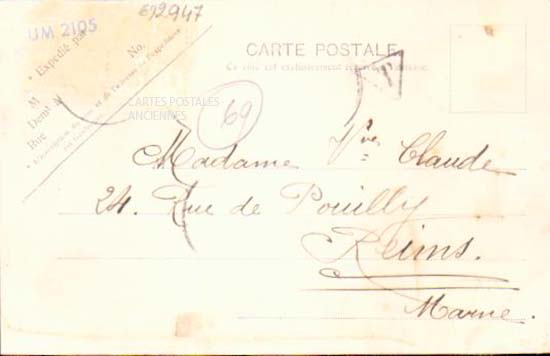 692947
UM 2105
Expédié par
No.
M
Demt
Rue
CARTE POSTALE
Ce côté est exclusivement réservé à l'adresse.
T
CARTES POSTALES
ANCIENNES
69
Madame Vve Claude
24. Rue de Pouilly
Reims.
Marne.